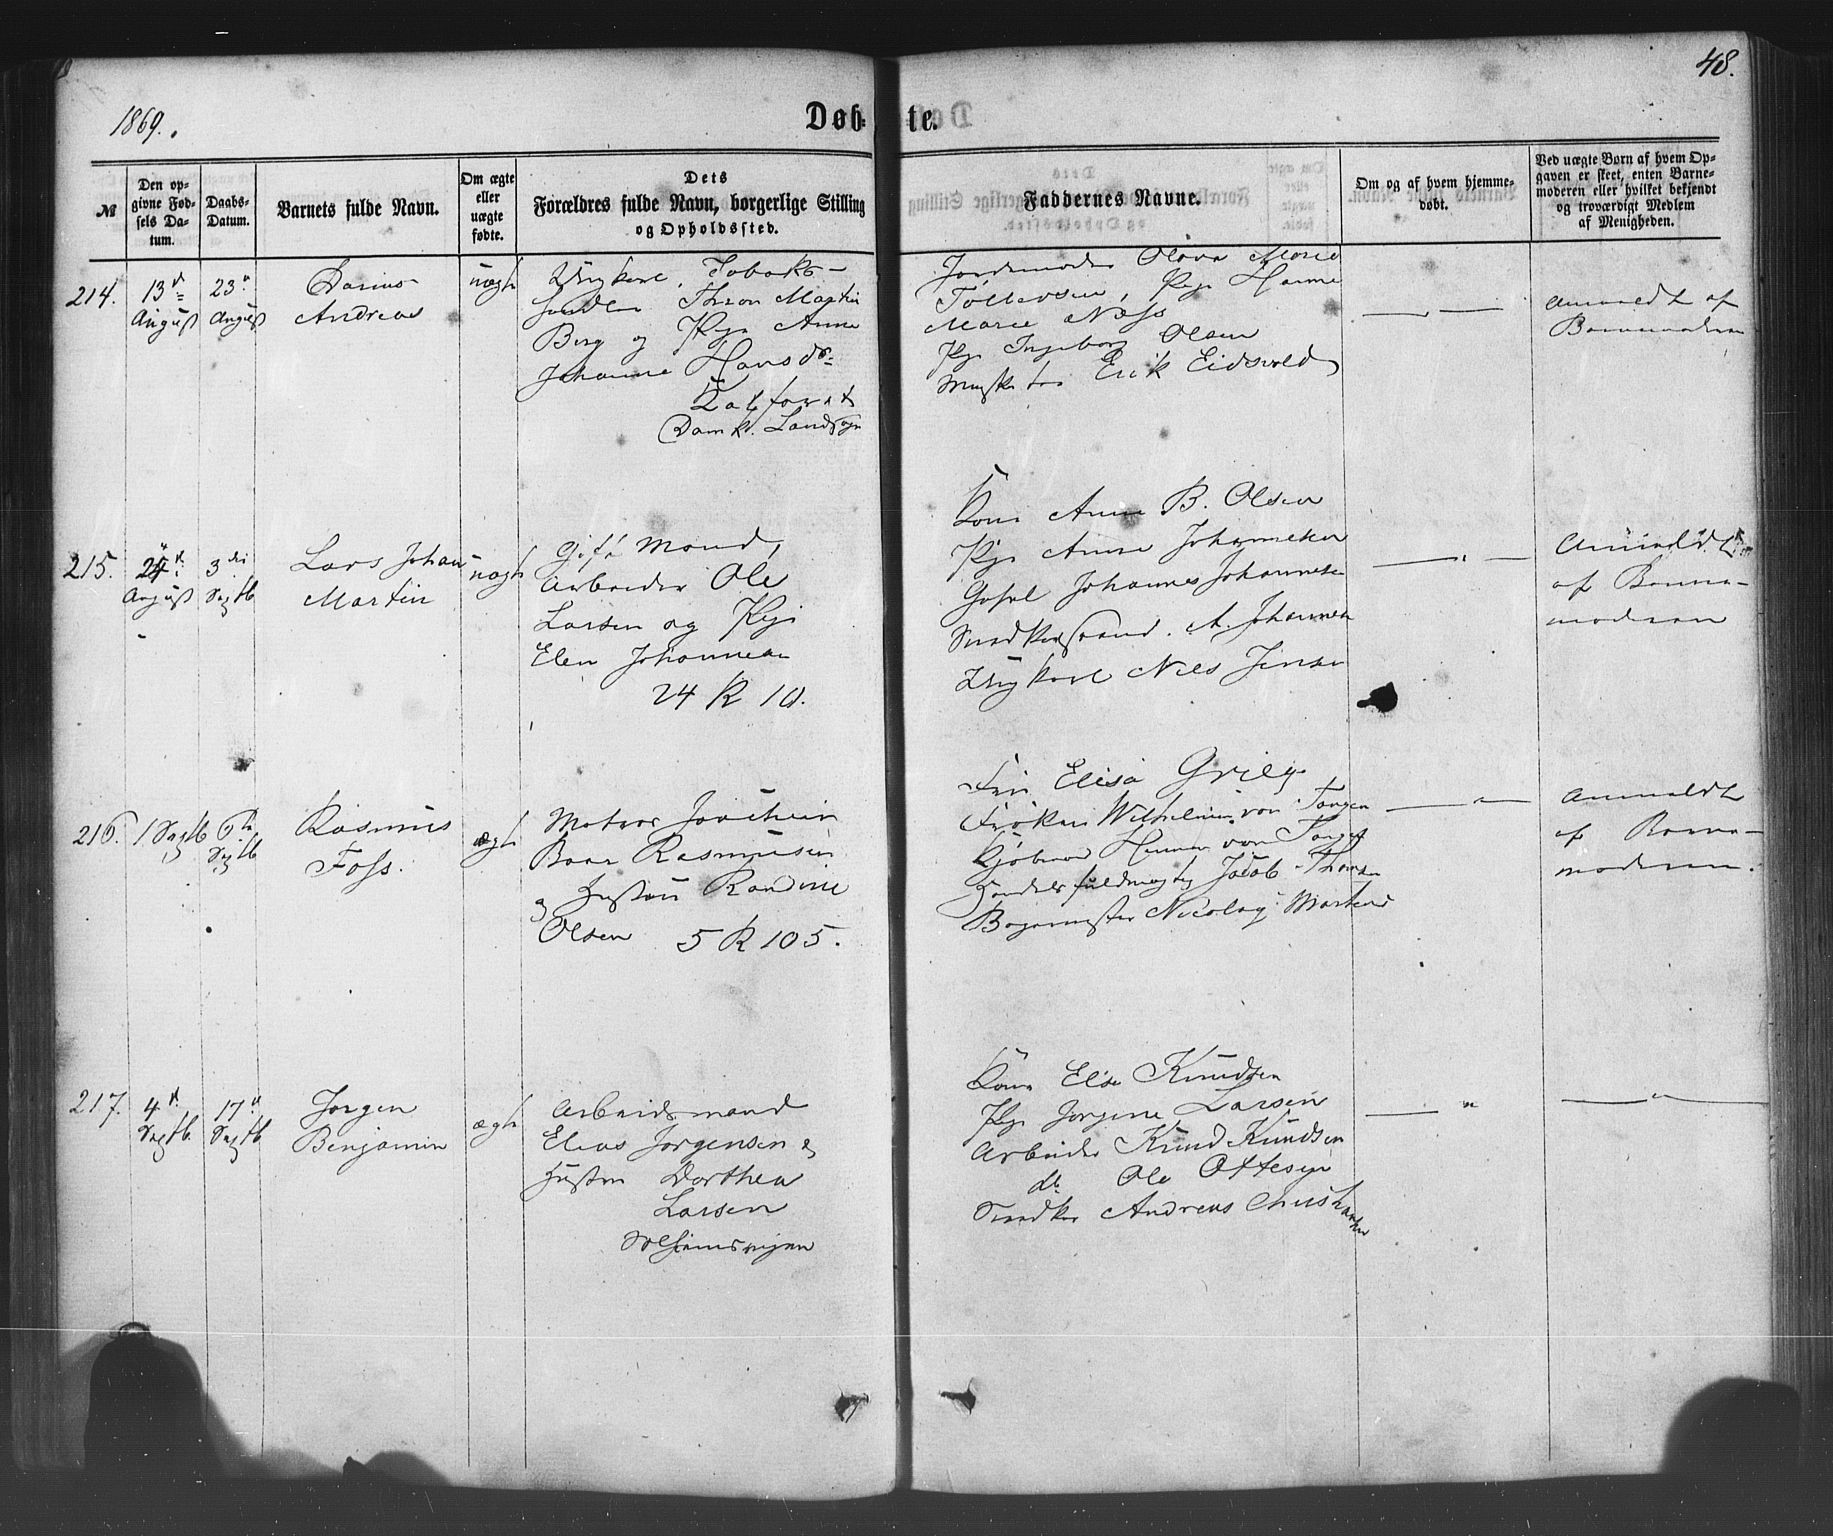 48.
1869.
Døbte.
№
Den opgivne Fødsels Datum.
Daabs-Datum.
Barnets fulde Navn.
Om ægte eller uægte fødte.
Dets Forældres fulde Navn, borgerlige Stilling og Opholdssted.
Faddernes Navne.
Om og af hvem hjemmedøbt.
Ved uægte Børn af hvem Opgaven er skeet, enten Barnemoderen eller hvilket bekjendt og troværdigt Medlem af Menigheden.
214.
13de August
23de August
Darius
Andreas
uægte
Ungkarl, Tobaks-
Martin
Berg og Pige Anne
Johanne Hansdr
Kalfaret
Domk. Landsogn
Jordemoder Olava Marie
Tollevsen, Pige Hanne
Marie Næss
Pige Ingeborg Olsen
Musketer Erik Eidsvold
Anmeldt af
Barnemoderen
215.
August
3die Septb
Lars Johan
Martin
uægte
Gift Mand,
Arbeider Ole
Larsen og Pige
Elen Johannesen
24 R 10.
Kone Anne B. Olsen
Pige Anne Johannesen
Johannes Johannesen
Snedkersvend A. Johannesen
Ungkarl Niels Jensen
Anmeldt
af Barne-
moderen
216.
1 Septb
6te Septb
Rasmus
Foss.
ægte
Matros Joachim
Baar Rasmusen
og Hustru Randine
Olsen 5 R 105.
Fru Elisa Grieg
Frøken Wilhelmine von Tangen
Kjøbmand von Tangen
Handelsfuldmægtig Jacob
Nicolay Martens
Anmeldt
af Barne-
moderen.
217.
4de Septb.
17de Septb.
Jørgen
Benjamin
ægte
Arbeidsmand
Elias Jørgensen og
Hustru Dorthea
Larsen
Kone Elise Knudsen
Pige Jørgine Larsen
Arbeider Knud Knudsen
do Ole Ottesen
Snedker Andreas Christiansen